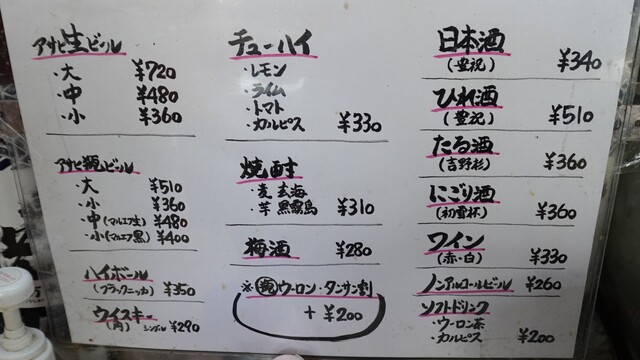 アサヒ生ビール
・大 ¥720
・中 ¥480
・小 ¥360
アサヒ瓶ビール
・大 ¥510
・小 ¥360
・中(マルエフ生) ¥480
・小(マルエフ黒) ¥400
ハイボール
(ブラックニッカ) ¥350
ウイスキー
(角) シングル ¥290
チューハイ
・レモン
・ライム
・トマト
・カルピス ¥330
焼酎
・麦 玄海
・芋 黒霧島 ¥310
梅酒 ¥280
※ ウーロン・タンサン割
+ ¥200
日本酒
(豊祝) ¥340
ひれ酒
(豊祝) ¥510
たる酒
(吉野杉) ¥360
にごり酒
(初雪杯) ¥360
ワイン
(赤・白) ¥330
ノンアルコールビール ¥260
ソフトドリンク
・ウーロン茶
・カルピス ¥200